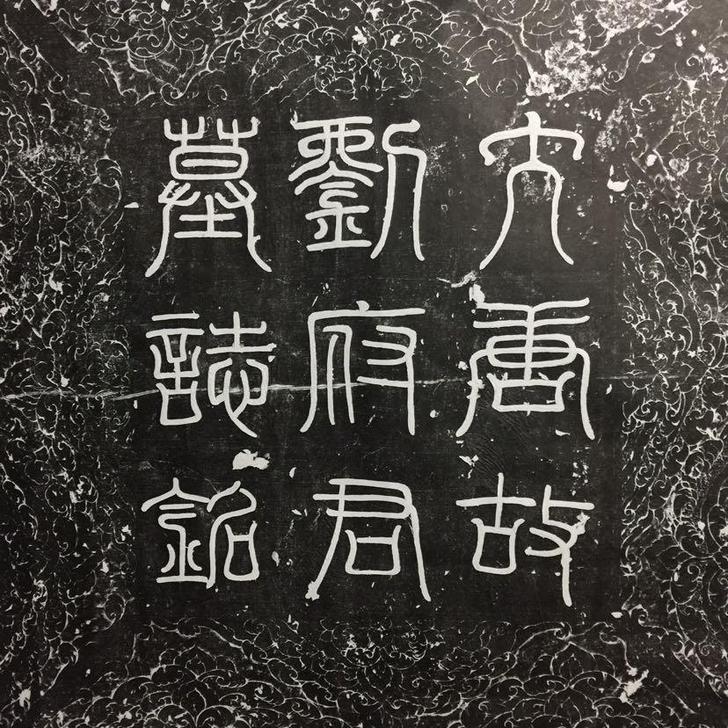 大唐故
劉府君
墓誌銘